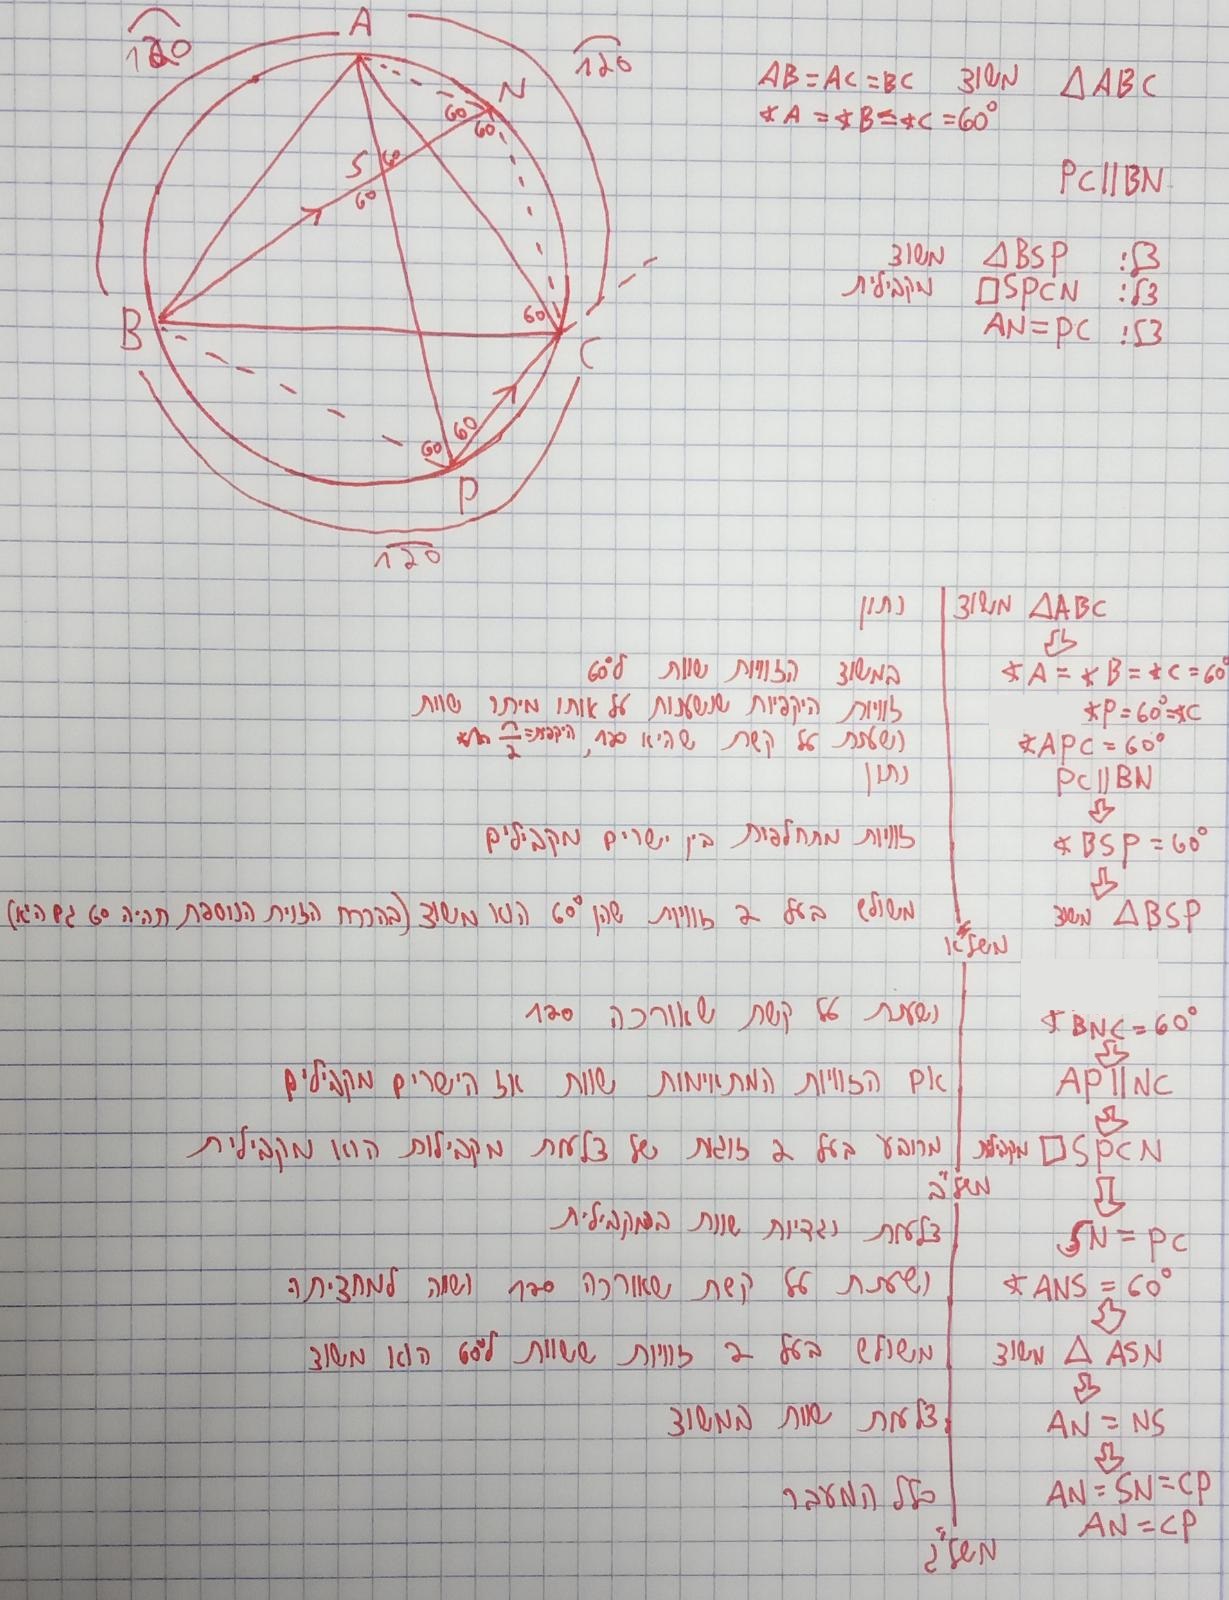 A
120
120
N
60
60
S
60
60
B
60
C
60
60
P
120
△ABC משוצ AB=AC=BC
∢A=∢B=∢C=60°
PC||BN
צל: △BSP משוצ
צל: □SPCN מקבילית
צל: AN=PC
△ABC משוצ | נתון
⇓
∢A=∢B=∢C=60° | במשוצ הזוויות שוות ל60°
∢P=60°=∢C | זוויות היקפיות שנשענות על אותו מיתר שוות
∢APC=60° | נשענת על קשת שהיא 120, היקפית=
PC||BN | נתון
⇓
∢BSP=60° | זוויות מתחלפות בין ישרים מקבילים
⇓
△BSP משוצ | משולש בעל 2 זוויות שהן 60° הוא משוצ (בהכרח הזוית הנוספת תהיה 60 גם היא)
משל א
∢BNC=60° | נשענת על קשת שאורכה 120
⇓
AP||NC | אם הזוויות המתאימות שוות אז הישרים מקבילים
⇓
□SPCN מקבילית | מרובע בעל 2 זוגות של צלעות מקבילות הוא מקבילית
משל ב
⇓
SN=PC | צלעות נגדיות שוות במקבילית
∢ANS=60° | נשענת על קשת שאורכה 120 ושווה למחציתה
⇓
△ASN משוצ | משולש בעל 2 זוויות ששוות ל60° הוא משוצ
⇓
AN=NS | צלעות שוות במשוצ
⇓
AN=SN=CP | כלל המעבר
AN=CP
משל ג